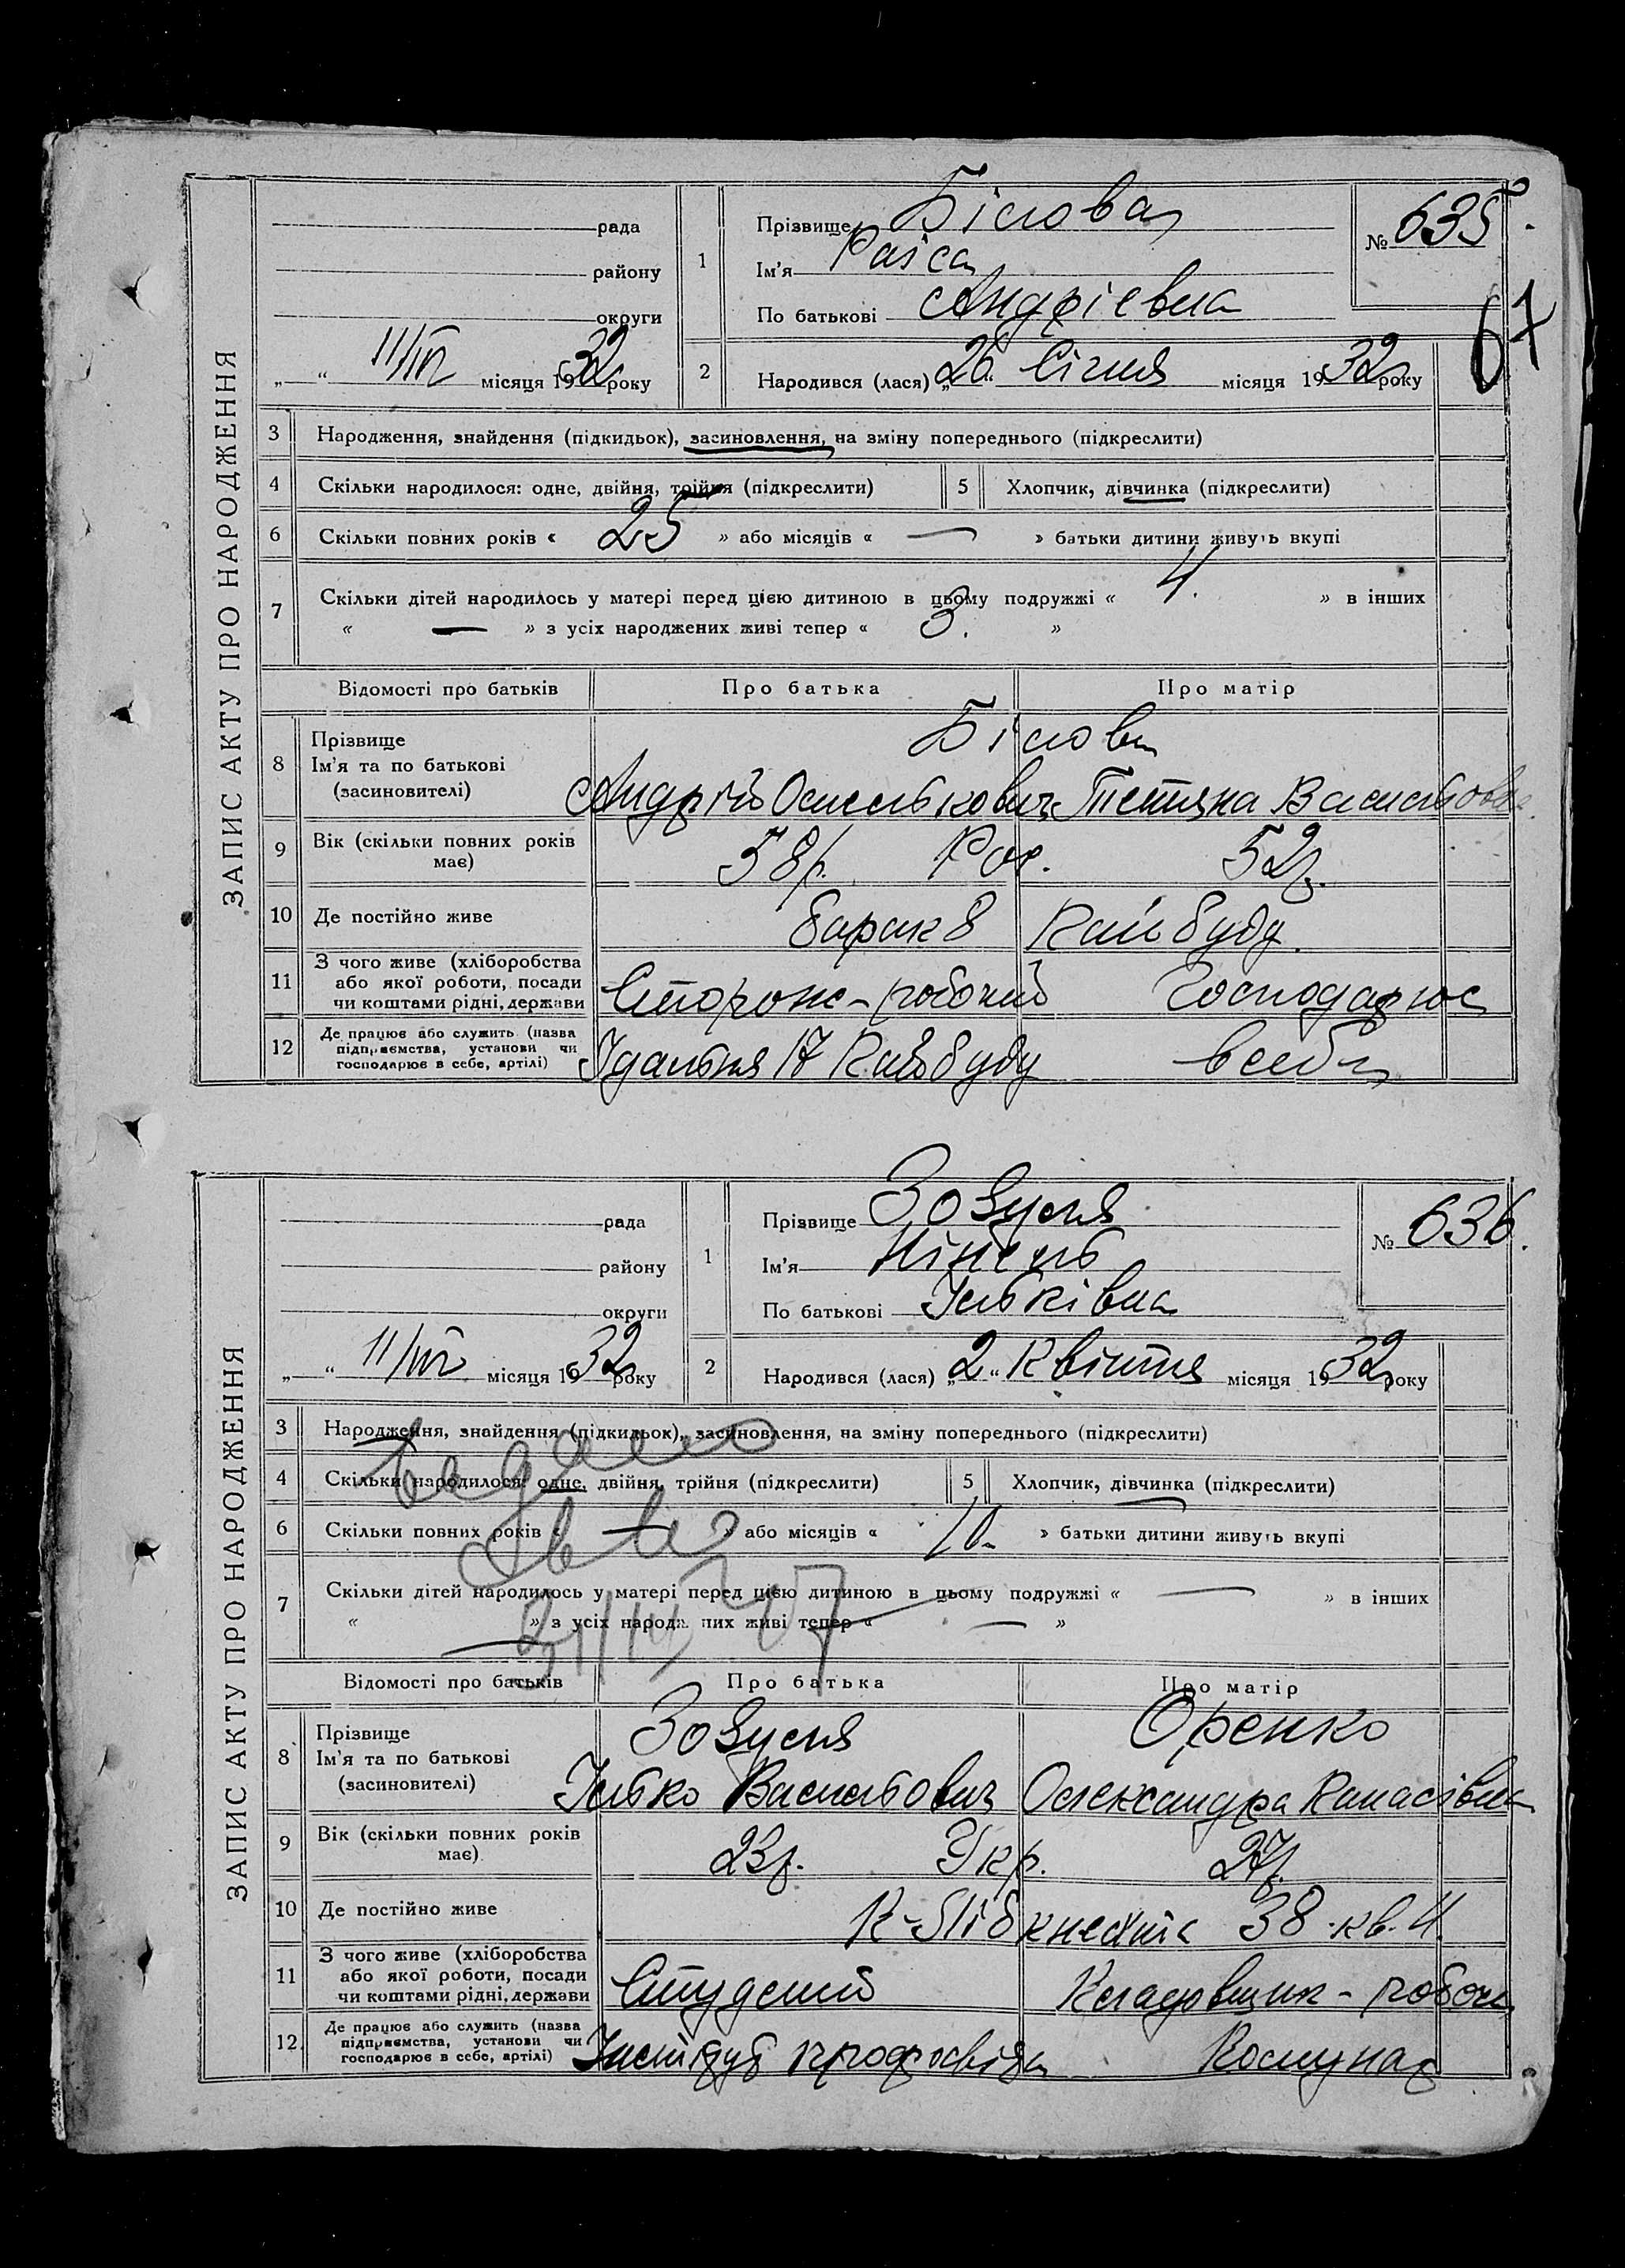 ЗАПИС АКТУ ПРО НАРОДЖЕННЯ
рада
району
округи
„ “ 11/IV місяця 1932 року
1
Прізвище Білова
Ім'я Раїса
По батькові Андрієвна
№ 635.
67
2 Народився (лася) „26“ Січня місяця 1932 року
3 Народження, знайдення (підкидьок), засиновлення, на зміну попереднього (підкреслити)
4 Скільки народилося: одне, двійня, трійня (підкреслити) 5 Хлопчик, дівчинка (підкреслити)
6 Скільки повних років « 25 » або місяців « — » батьки дитини живуть вкупі
7 Скільки дітей народилось у матері перед цією дитиною в цьому подружжі « 4. » в інших
« — » з усіх народжених живі тепер « 3. »
Відомості про батьків Про батька Про матір
8 Прізвище
Ім'я та по батькові
(засиновителі)
Білови
Андрій Омелькович Тетяна Васильовна
9 Вік (скільки повних років має) 58р. Рос. 52р.
10 Де постійно живе барак 8
11 З чого живе (хліборобства
або якої роботи, посади
чи коштами рідні, держави
Сторож - робочий Господарює
12 Де працює або служить (назва
підприємства, установи чи
господарює в себе, артілі)
Їдальня 17 в себе
ЗАПИС АКТУ ПРО НАРОДЖЕННЯ
рада
району
округи
„ “ 11/IV місяця 1932 року
1
Прізвище Зозуля
Ім'я Нінель
По батькові Ільківна
№ 636.
2 Народився (лася) „2“ Квітня місяця 1932 року
3 Народження, знайдення (підкидьок), засиновлення, на зміну попереднього (підкреслити)
4 Скільки народилося: одне, двійня, трійня (підкреслити) 5 Хлопчик, дівчинка (підкреслити)
6 Скільки повних років « — » або місяців « 10 » батьки дитини живуть вкупі
7 Скільки дітей народилось у матері перед цією дитиною в цьому подружжі « — » в інших
« — » з усіх народжених живі тепер « — »
Відомості про батьків Про батька Про матір
8 Прізвище
Ім'я та по батькові
(засиновителі)
Зозуля Оренко
Ілько Васильович Олександра Панасівна
9 Вік (скільки повних років має) 23р. Укр. 27р.
10 Де постійно живе К-Лібкнехта 38 кв. 4.
11 З чого живе (хліборобства
або якої роботи, посади
чи коштами рідні, держави
Студент Кладовщик - робоч
12 Де працює або служить (назва
підприємства, установи чи
господарює в себе, артілі)
профосвіти Комунар